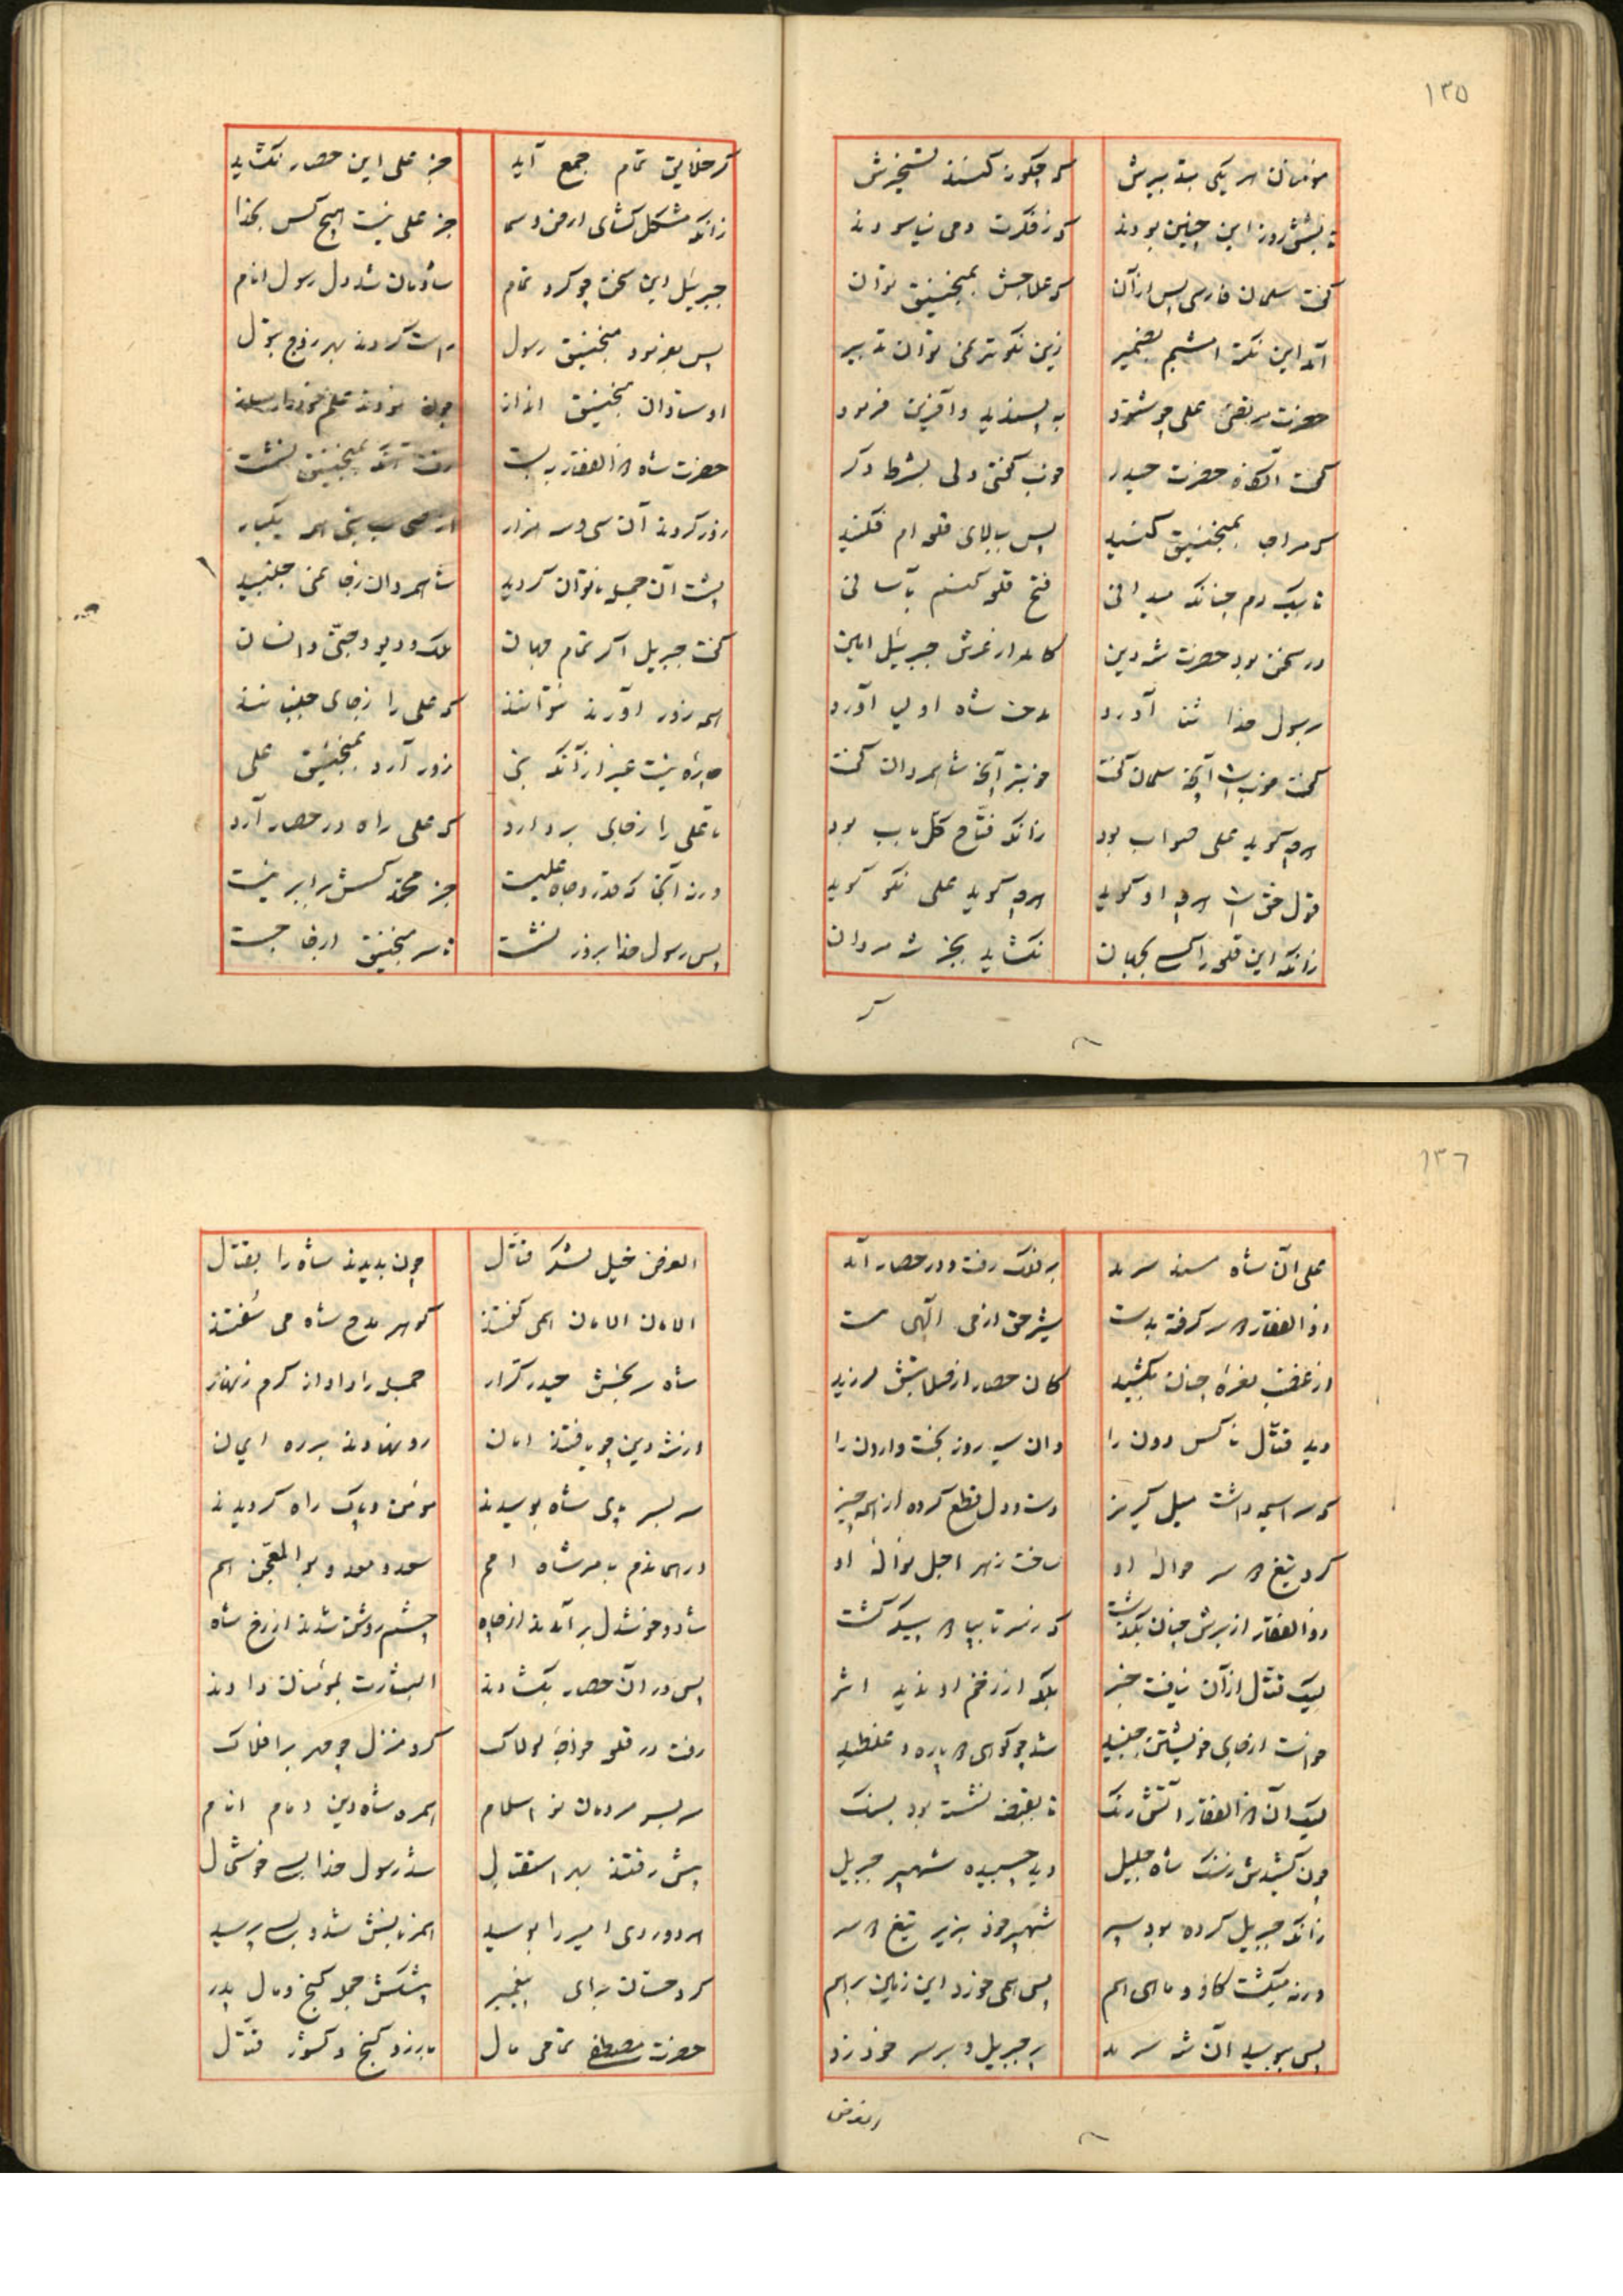 ١٣٥
مؤمنان هر یکی بتدبیرش که چگونه کنند تسخیرش
تا بشش روز این چنین بودند که ز فکرت دمی نیاسودند
گفت سلمان فارسی پس از آن که علاجش بمنجنیق توان
آمد این نکته‌ام بضمیر زین نکوتر نمی توان تدبیر
حضرت مرتضی علی چو شنود به پسندید و آفرین فرمود
گفت آنگاه حضرت حیدر خوب گفتی ولی بشرط دگر
که مرا بمنجنیق کنید پس ببالای قلعه ام فکنید
تا بیک دم چنانکه میدانی فتح قلعه کنم بآسانی
در سخن بود حضرت شه دین کامد از عرش جبرییل امین
برسول خدا ثنا آورد مدحت شاه اولیا آورد
گفت خوبست آنچه سلمان گفت خوبتر آنچه شاه مردان گفت
هرچه گوید علی صواب بود زانکه فتّاح کل باب بود
قول حق است هرچه او گوید هرچه گوید علی نکو گوید
زانکه این قلعه را کسی بجهان نکشاید بجز شه مردان
گر
گر خلایق تمام جمع آید جز علی این حصار نکشاید
زانکه مشکل کشای ارض و سما جز علی نیست هیچ کس بخدا
جبرییل این سخن چو کرد تمام شادمان شد دل رسول انام
پس بفرمود منجنیق رسول راست کردند بهر زوج بتول
اوستادان منجنیق انداز چون نمودند علم خود
حضرت شاه ذوالفقار بدست رفت آنکه بمنجنیق نشست
زور کردند آن سی و سه هزار از صحاب نبی همه یکبار
پشت آن جمله ناتوان گردید شاه مردان ز جا نمی جنبید
گفت جبریل اگر تمام جهان ملک و دیو و جنّی و انسان
همه زور آورند نتوانند که علی را ز جای جنبانند
چاره نیست غیر از آنکه نبی زور آرد بمنجنیق علی
تا علی را ز جای بردارد که علی راه در حصار آرد
ورنه آنجا که قدر و جاه علیست جز محمد کسش برابر نیست
پس رسول خدا بزور نشست تا سر منجنیق از جا جست
١٣٦
علی آن شاه مسند سرمد بر فلک رفت و در حصار آمد
ذوالفقار دو سر گرفته بدست شیر حق از می الهی مست
از غضب نعرهٔ چنان بکشید کان حصار از صلابتش لرزید
دید قتّال ناکس دون را وان سیه روز بخت وارون را
که سراسیمه داشت میل گریز دست و دل قطع کرده از همه چیز
کرد تیغ دو سر حوالهٔ او ساخت زهر اجل نوالهٔ او
ذوالفقار از برش چنان بگذشت که ز سر تا بپا دو پیکر گشت
لیک قتّال از آن نیافت خبر بلکه از زخم او ندید اثر
خواست از جای خویشتن جنبید شد چو کوهی دو پاره و غلطید
لیک آن ذوالفقار آتش رنگ تا بقبضه نشسته بود بسنگ
چون کشیدش ز سنگ شاه جلیل دید چسپیده شهپر جبریل
زانکه جبریل کرده بود سپر شهپر خود بزیر تیغ دو سر
ورنه میگشت گاو و ماهی هم پس همی خورد این زمین برهم
پس ببوسید آن شه سرمد پر جبریل و بر سر خود زد
العرض
العرض خیل لشکر قتّال چون بدیدند شاه را بقتال
الامان الامان همی گفتند گوهر مدح شاه می سُفتند
شاه سر بخش حیدر کرّار جمله را داد از کرم زنهار
از شه دین چو یافتند امان رو نهادند بر ره ایمان
سر بسر پای شاه بوسیدند مؤمن و پاک راه گردیدند
در هماندم بامر شاه امم سعد و سعید و بوالمعجن هم
شاد و خوشدل برآمدند از چاه چشم روشن شدند از رخ شاه
پس در آن حصار بکشادند البشارت بمؤمنان دادند
رفت در قلعه خواجهٔ لولاک کرد منزل چو مهر بر افلاک
سر بسر مردمان نو اسلام همره شاه دین امام انام
پیش رفتند بهر استقبال شد رسول خدا بسی خوشحال
هر دو روی امیر را بوسید همزبانش شد و بسی پرسید
کرد حسان برای پیغمبر پیشکش جمله گنج و مال پدر
حضرت مصطفی تمامی مال با زر و گنج و کشور قتّال